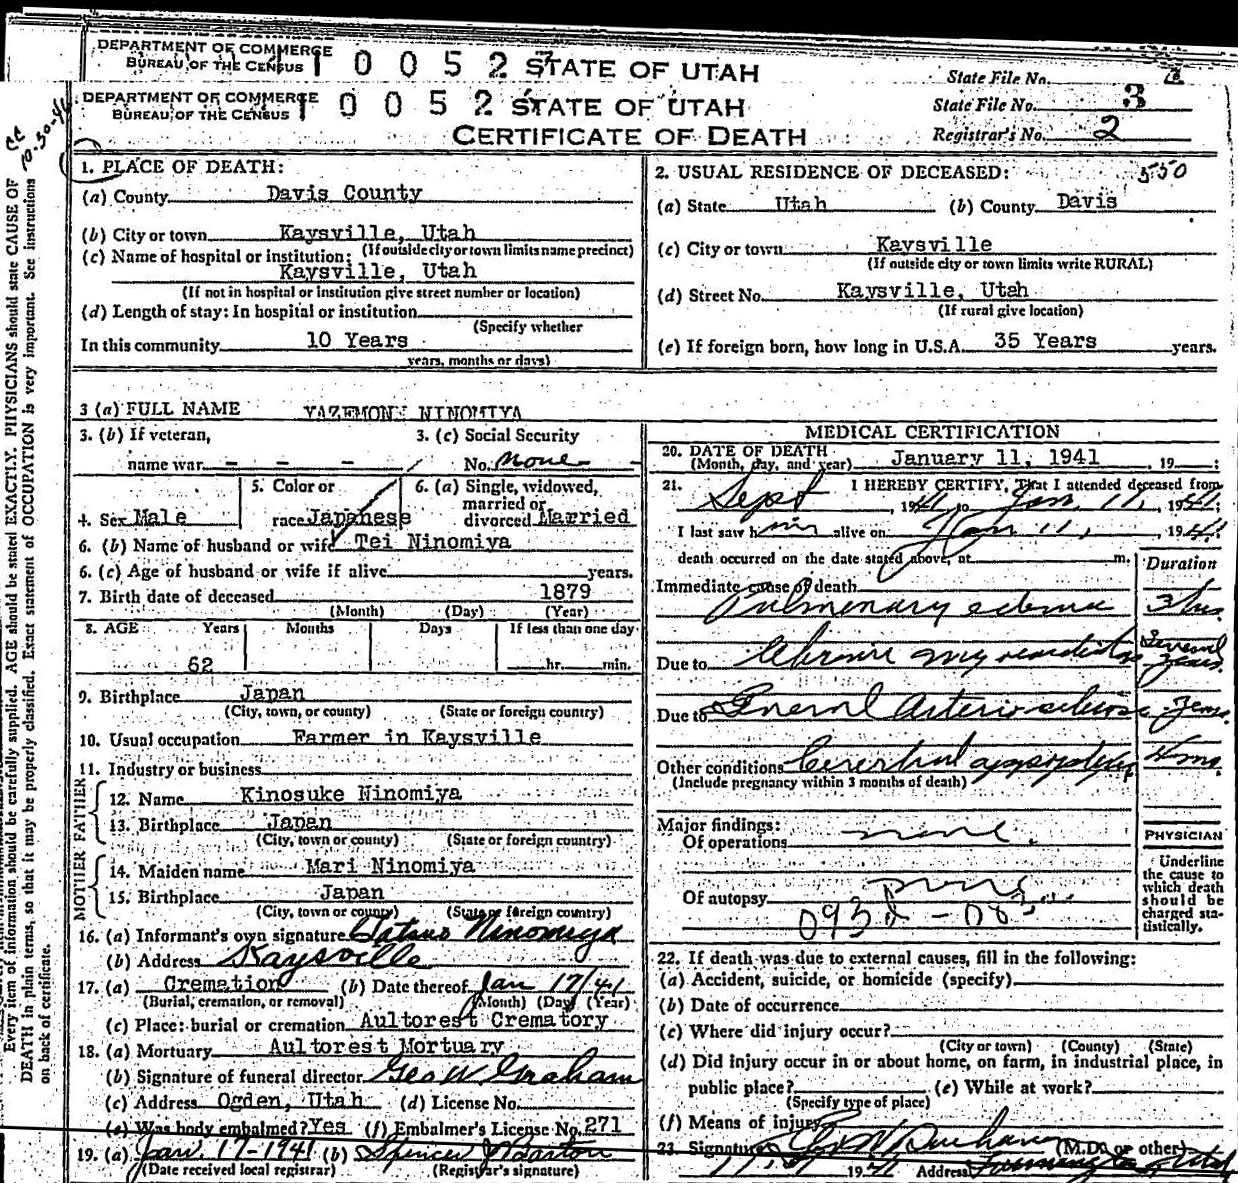 DEPARTMENT OF COMMERCE
BUREAU OF THE CENSUS
1 0 0 5 2 STATE OF UTAH
State File No.
DEPARTMENT OF COMMERCE
BUREAU OF THE CENSUS
1 0 0 5 2 STATE OF UTAH
State File No. 3
CERTIFICATE OF DEATH
Registrar's No. 2
cc 10-30-46
1. PLACE OF DEATH:
(a) County Davis County
(b) City or town Kaysville, Utah
(If outside city or town limits name precinct)
(c) Name of hospital or institution:
Kaysville, Utah
(If not in hospital or institution give street number or location)
(d) Length of stay: In hospital or institution
(Specify whether
In this community 10 Years
years, months or days)
2. USUAL RESIDENCE OF DECEASED: 550
(a) State Utah (b) County Davis
(c) City or town Kaysville
(If outside city or town limits write RURAL)
(d) Street No. Kaysville, Utah
(If rural give location)
(e) If foreign born, how long in U.S.A. 35 Years years.
3 (a) FULL NAME NINOMIYA
3. (b) If veteran,
name war - - - -
3. (c) Social Security
No. none -
4. Sex Male
5. Color or
race Japanese
6. (a) Single, widowed,
married or
divorced Married
6. (b) Name of husband or wife Tei Ninomiya
6. (c) Age of husband or wife if alive years.
7. Birth date of deceased 1879
(Month) (Day) (Year)
8. AGE Years Months Days If less than one day
62 hr. min.
9. Birthplace Japan
(City, town, or county) (State or foreign country)
10. Usual occupation Farmer in Kaysville
11. Industry or business
FATHER
12. Name Kinosuke Ninomiya
13. Birthplace Japan
(City, town, or county) (State or foreign country)
MOTHER
14. Maiden name Mari Ninomiya
15. Birthplace Japan
(City, town or county) (State or foreign country)
16. (a) Informant's own signature Tatsuo Ninomiya
(b) Address Kaysville
17. (a) Cremation (b) Date thereof Jan 17/41
(Burial, cremation, or removal) (Month) (Day) (Year)
(c) Place: burial or cremation Aultorest Crematory
18. (a) Mortuary Aultorest Mortuary
(b) Signature of funeral director Geo W Graham
(c) Address Ogden, Utah (d) License No.
(e) Was body embalmed? Yes (f) Embalmer's License No. 271
19. (a) Jan. 17-1941 (b) Spencer J Barton
(Date received local registrar) (Registrar's signature)
MEDICAL CERTIFICATION
20. DATE OF DEATH
(Month, day, and year) January 11, 1941 , 19 ;
21. I HEREBY CERTIFY, That I attended deceased from
Sept , 1941, to Jan. 11, 1941;
I last saw him alive on Jan 11, 1941;
death occurred on the date stated above, at m.
Duration
Immediate cause of death
Pulmonary edema 3 hrs
Due to Chronic myocarditis Several years.
Due to General Arteriosclerosis years
Other conditions Cerebral apoplexy 4 mo.
(Include pregnancy within 3 months of death)
Major findings:
Of operations none.
Of autopsy none
PHYSICIAN
Underline
the cause to
which death
should be
charged sta-
tistically.
22. If death was due to external causes, fill in the following:
(a) Accident, suicide, or homicide (specify)
(b) Date of occurrence
(c) Where did injury occur?
(City or town) (County) (State)
(d) Did injury occur in or about home, on farm, in industrial place, in
public place? (e) While at work?
(Specify type of place)
(f) Means of injury
23. Signature (M.D. or other)
1941 Address Farmington, Utah
Every item of information should be carefully supplied. AGE should be stated EXACTLY. PHYSICIANS should state CAUSE OF
DEATH in plain terms, so that it may be properly classified. Exact statement of OCCUPATION is very important. See instructions
on back of certificate.